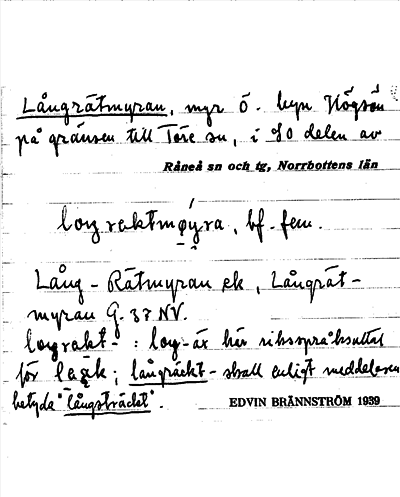 Långrätmyran, myr ö. byn Högsön
på gränsen till Töre sn, i SO delen av
Råneå sn och tg, Norrbottens län
loŋrektmøyra, bf. fem.
Lång-Rätmyran ek, Långrät-
myran G. 37 NV.
loŋrekt- : loŋ- är här riksspråksuttal
för; långräckt- skall enligt meddelaren
betyda "långsträckt".
EDVIN BRÄNNSTRÖM 1939